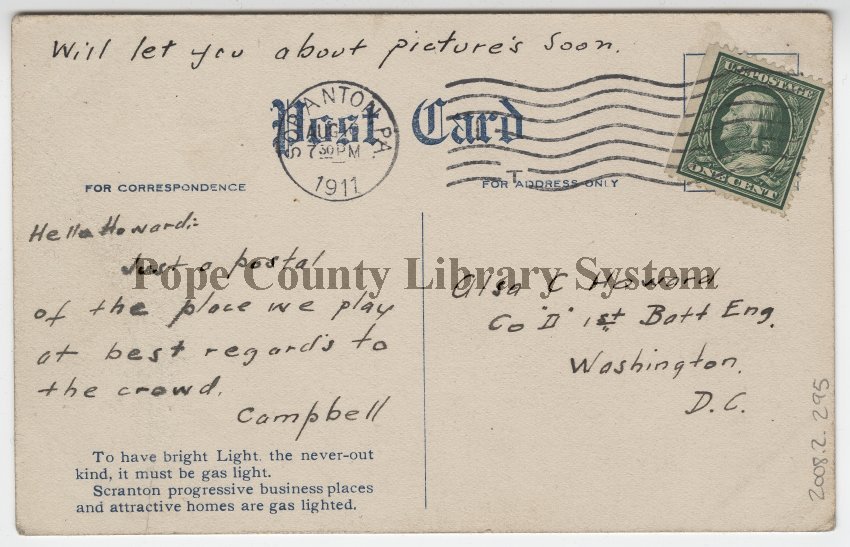 Will let you about picture's soon.
Post Card
SCRANTON, PA.
AUG
7 30 PM
1911
U.S. POSTAGE
ONE CENT
FOR CORRESPONDENCE
FOR ADDRESS ONLY
Hello Howard:-
Just a postal
of the place we play
at best regard's to
the crowd.
Campbell
Pope County Library System
Alsa C Howard
Co "D" 1st Batt Eng.
Washington.
D.C.
To have bright Light, the never-out
kind, it must be gas light.
Scranton progressive business places
and attractive homes are gas lighted.
2008.2.295